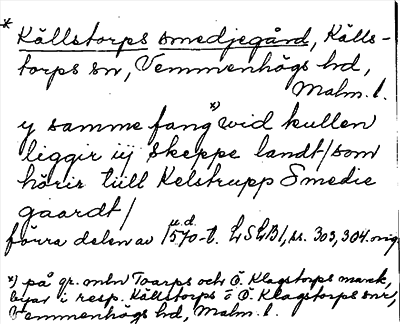 * Källstorps smedjegård, Källs-
torps sn, Vemmenhögs hd,
Malm. l.
y samme fang *) wid kullen
liggir iij skeppe landt/som
hörir tiill Kelstrupp Smedie
gaardt/
förra delen av 1570-t. u.d. LSLB1, ss. 303, 304. orig.
*) på gr. mln Toarps och Ö. Klagstorps mark,
byar i resp. Källstorps o Ö. Klagstorps snr,
Vemmenhögs hd, Malm. l.